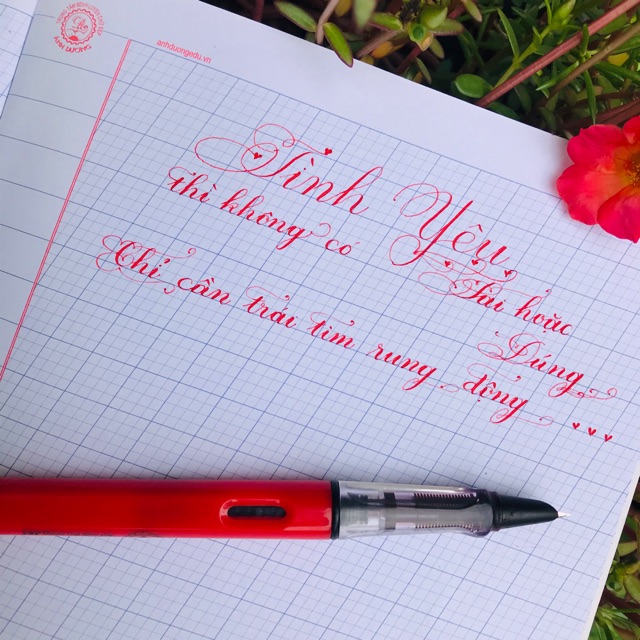 ÁNH DƯƠNG
anhduongedu.vn
Tình Yêu
thì không có Sai hoặc
Đúng
Chỉ cần trái tim rung động